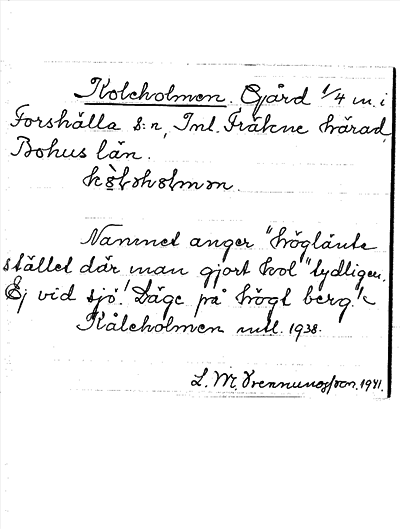 Kolcholmen. Gård 1/4 m. i
Forshälla s:n, Inl. Fräkne härad,
Bohus län.
Namnet anger "höglänte
stället där man gjort kol" tydligen.
Ej vid sjö! Läge på högt berg!
Kålcholmen mtl. 1938.
L. M. Svennungsson. 1941.